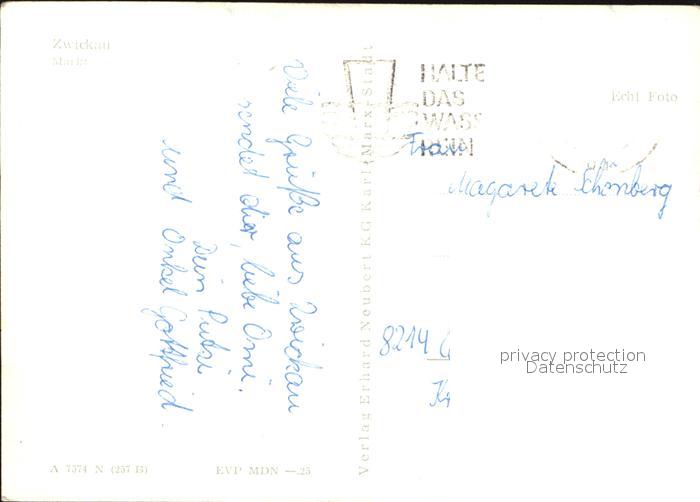 Zwickau
Markt
Viele Grüße aus Zwickau
sendet dir, liebe Omi,
Dein Putzi
und Onkel Gottfried.
Verlag Erhard Neubert KG Karl-Marx-Stadt
HALTE
DAS
WASS
REIN
Echt Foto
Frau
Magarete
8214
privacy protection
Datenschutz
A 7574 N (257 B)
EVP MDN —.25